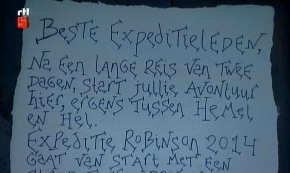 rtl
5
BESTE EXPEDITIELEDEN,
NA EEN LANGE REIS VAN TWEE
DAGEN, START JULLIE AVONTUUR
HIER, ERGENS TUSSEN HEMEL
EN HEL.
EXPEDITIE ROBINSON 2014
GAAT VAN START MET EEN